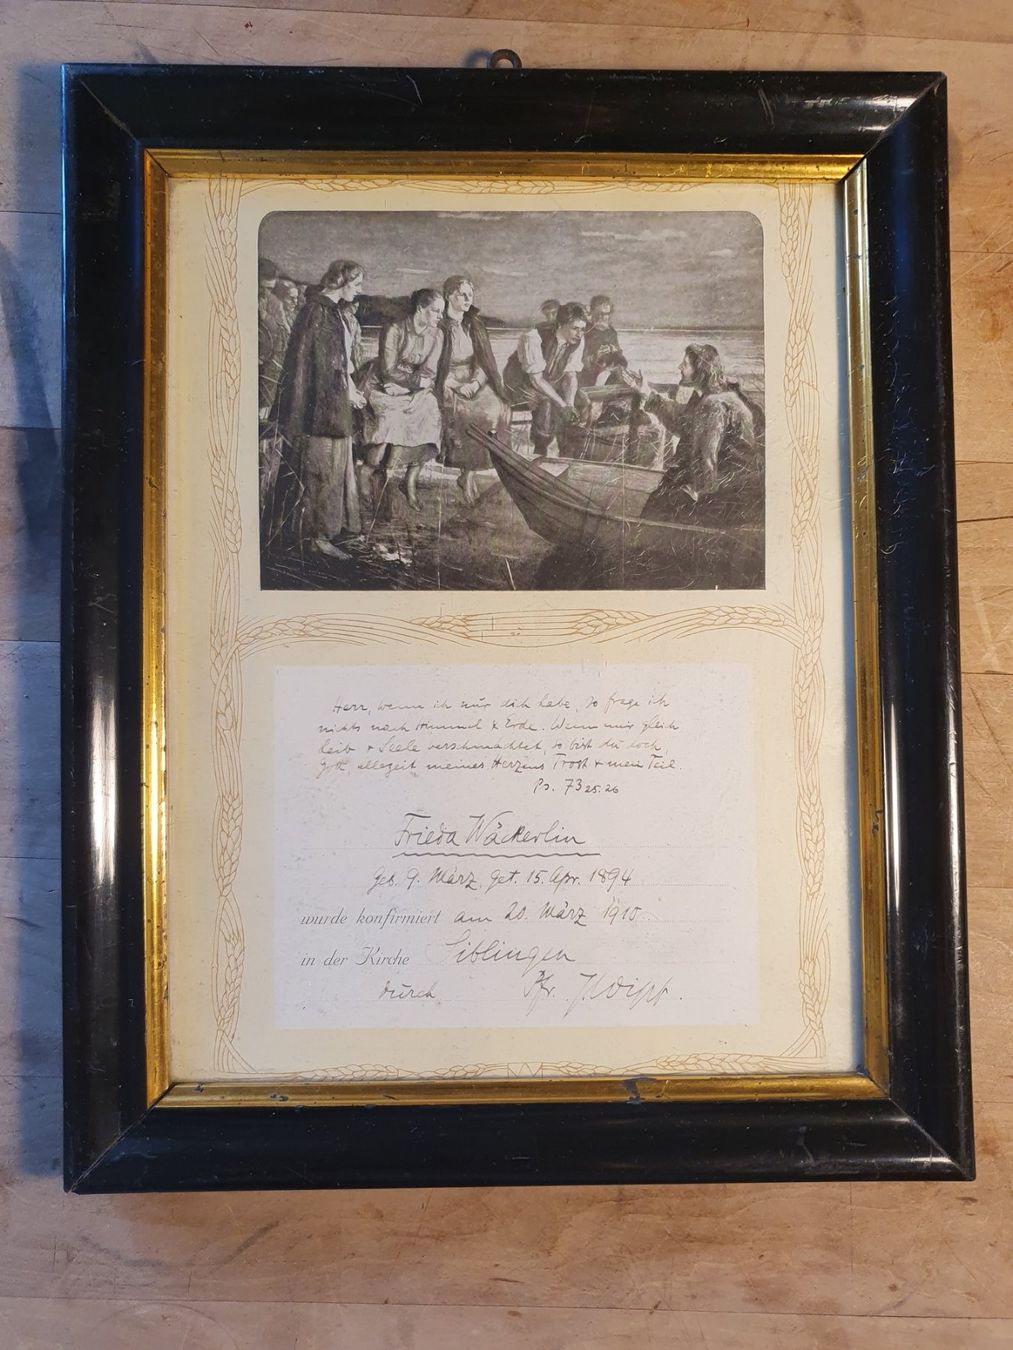 Herr, wenn ich nur dich habe, so frage ich
nichts nach Himmel & Erde. Wenn mir gleich
Leib + Seele verschmachtet, so bist du doch,
Gott, allezeit meines Herzens Trost + mein Teil.
Ps. 73 25.26
Frieda Wäckerlin
geb. 9. März, get. 15. Apr. 1894
wurde konfirmiert am 20. März 1910.
in der Kirche Siblingen
durch Pfr.